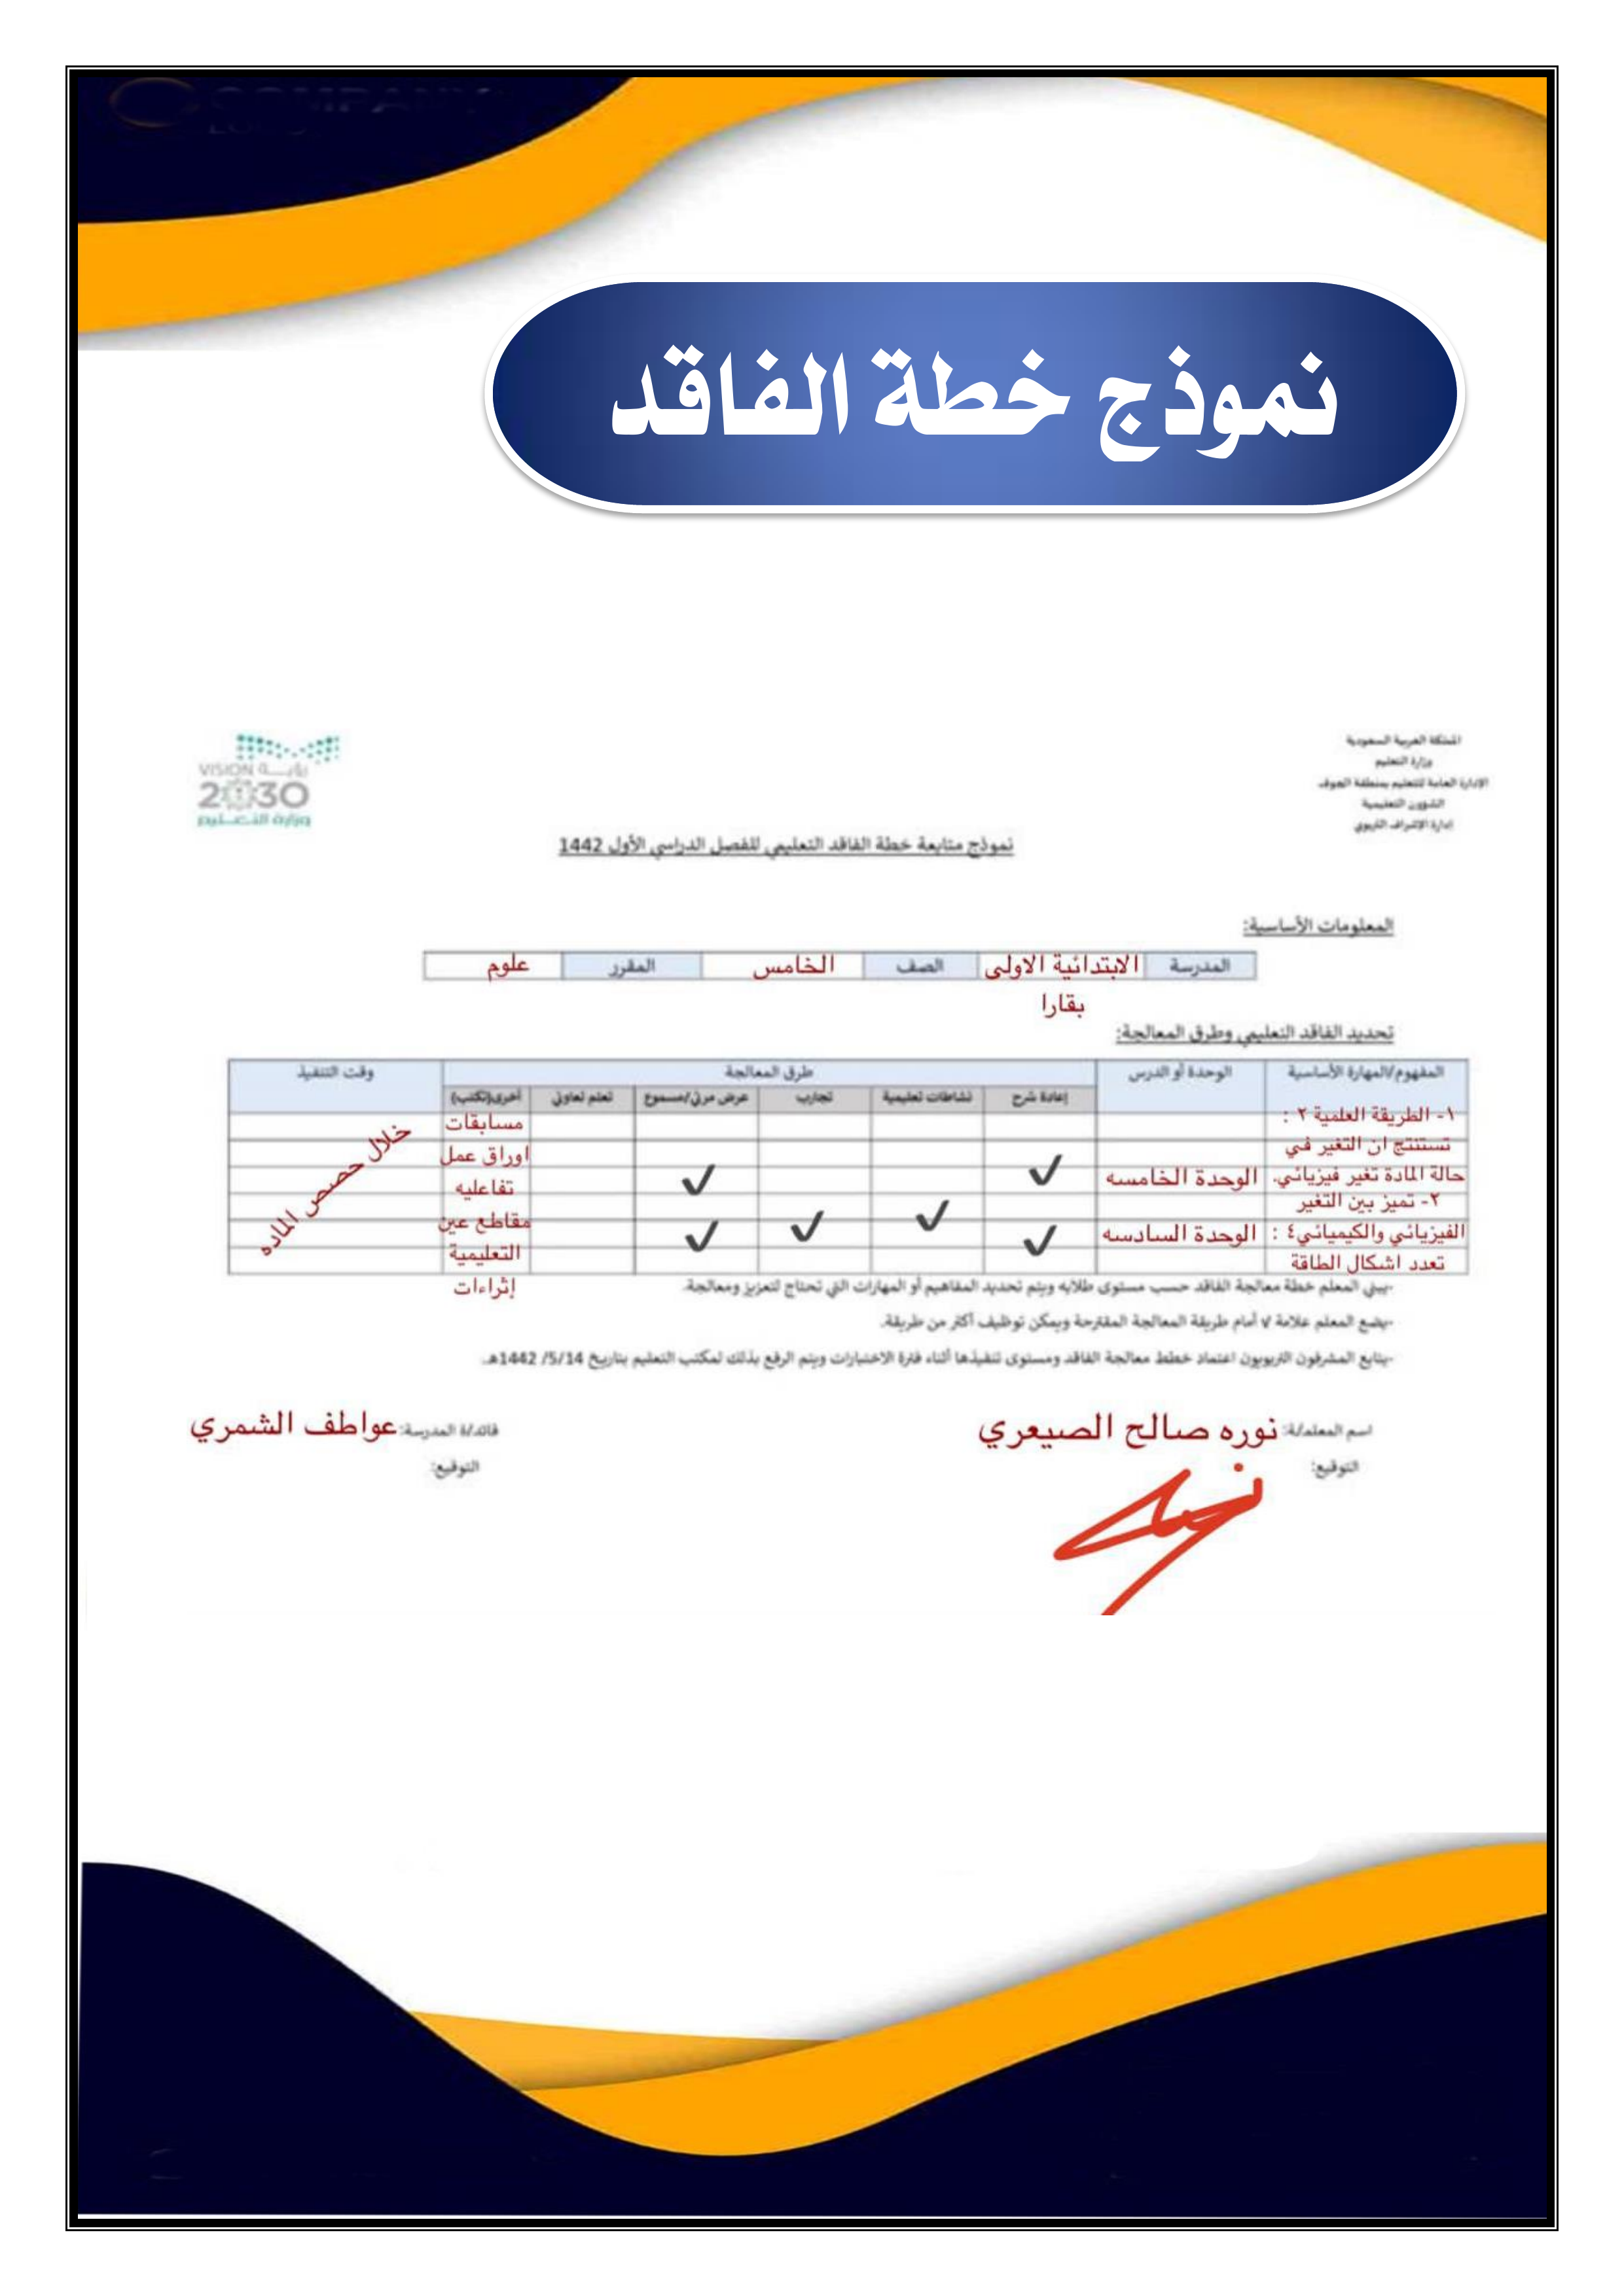 نموذج خطة الفاقد
المملكة العربية السعودية
وزارة التعليم
الإدارة العامة للتعليم بمنطقة الجوف
الشؤون التعليمية
إدارة الإشراف التربوي
VISION رؤيـــة
2030
وزارة التعـــليم
نموذج متابعة خطة الفاقد التعليمي للفصل الدراسي الأول 1442
المعلومات الأساسية:
المدرسة الابتدائية الاولى الصف الخامس المقرر علوم
بقارا
تحديد الفاقد التعليمي وطرق المعالجة:
المفهوم/المهارة الأساسية الوحدة أو الدرس طرق المعالجة وقت التنفيذ
إعادة شرح نشاطات تعليمية تجارب عرض مرئي/مسموع تعلم تعاوني أخرى(تكتب)
١- الطريقة العلمية ٢ : مسابقات
تستنتج ان التغير في اوراق عمل
حالة المادة تغير فيزيائي. الوحدة الخامسه ✓ ✓ تفاعليه خلال حصص الماده
٢- تميز بين التغير ✓ ✓ مقاطع عين
الفيزيائي والكيميائي٤ : الوحدة السادسه ✓ ✓ التعليمية
تعدد اشكال الطاقة إثراءات
-يبني المعلم خطة معالجة الفاقد حسب مستوى طلابه ويتم تحديد المفاهيم أو المهارات التي تحتاج لتعزيز ومعالجة.
-يضع المعلم علامة √ أمام طريقة المعالجة المقترحة ويمكن توظيف أكثر من طريقة.
-يتابع المشرفون التربويون اعتماد خطط معالجة الفاقد ومستوى تنفيذها أثناء فترة الاختبارات ويتم الرفع بذلك لمكتب التعليم بتاريخ 5/14/ 1442هـ.
اسم المعلم/ة: نوره صالح الصيعري قائد/ة المدرسة: عواطف الشمري
التوقيع: التوقيع: